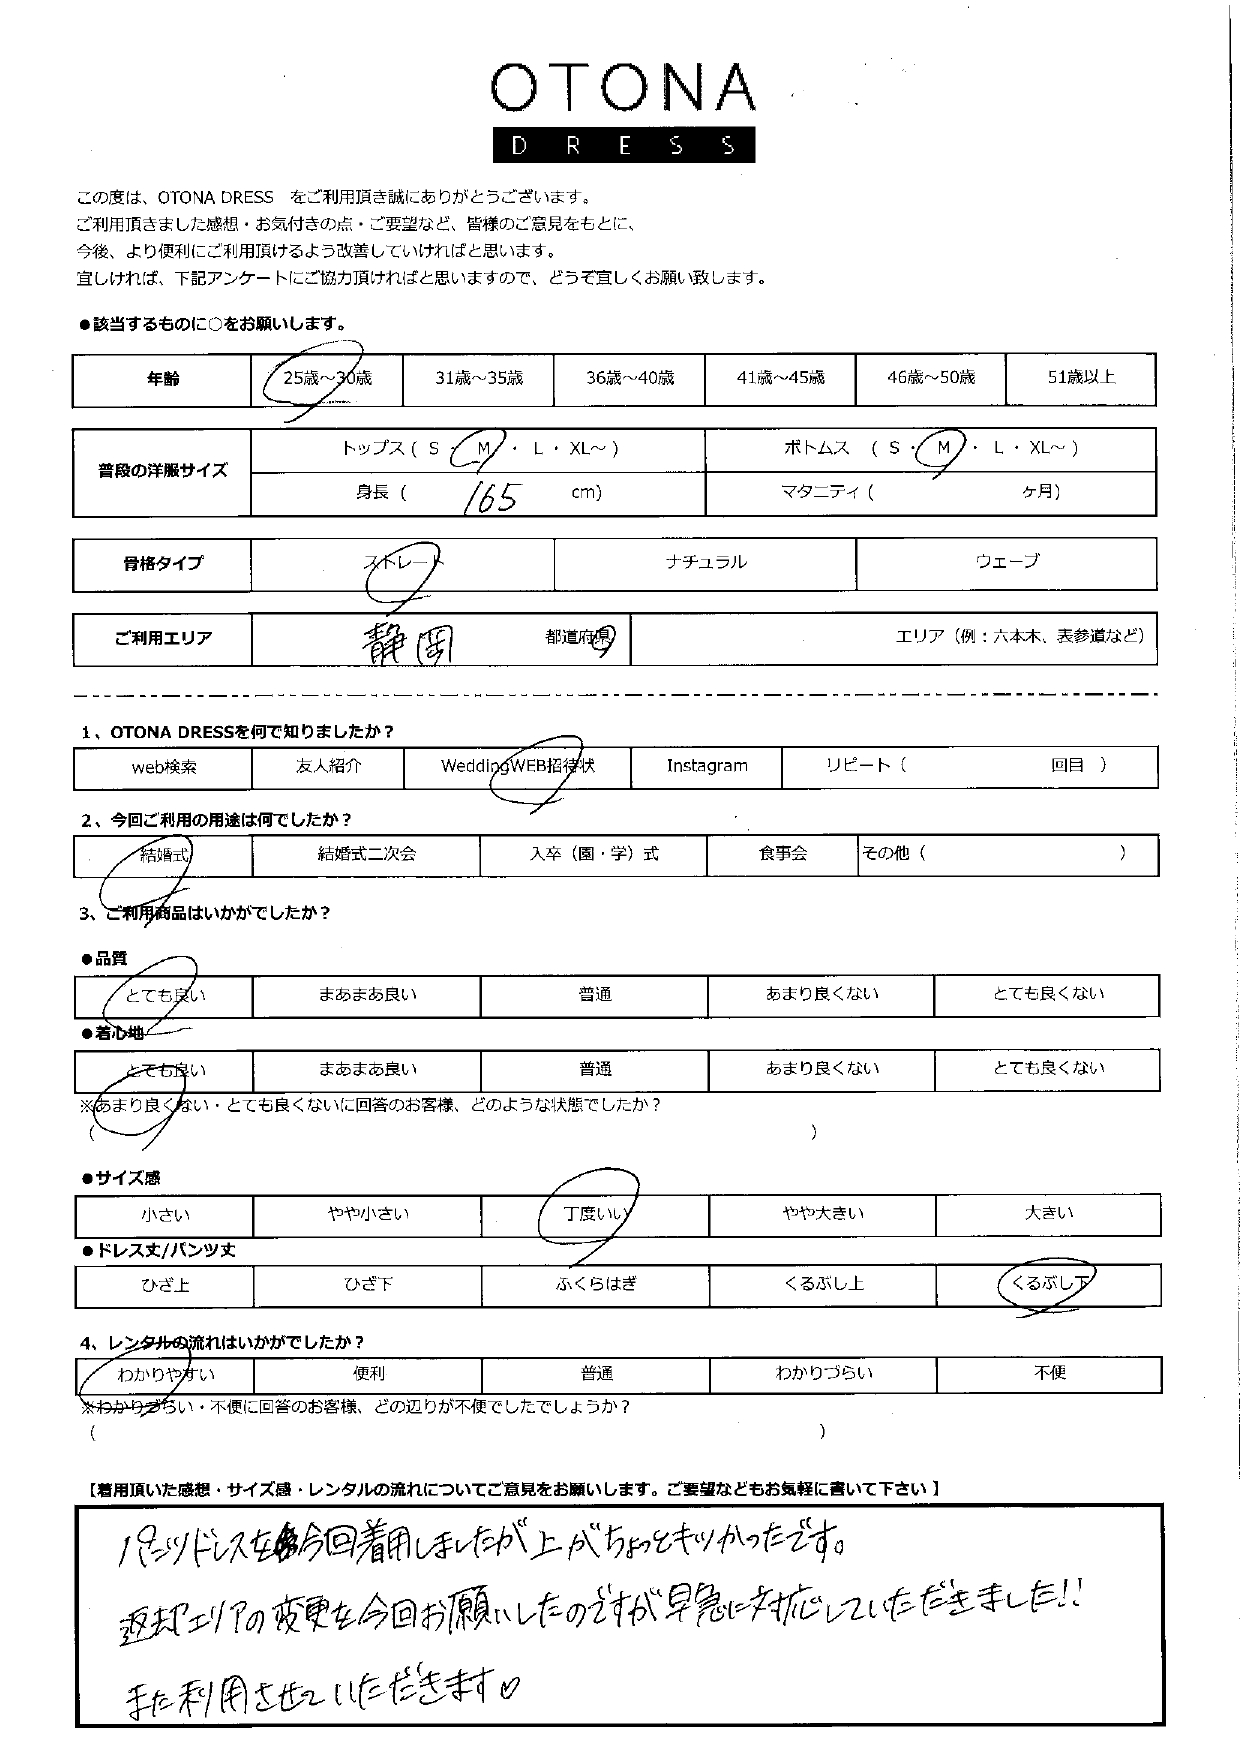 OTONA
DRESS
この度は、OTONA DRESS をご利用頂き誠にありがとうございます。
ご利用頂きました感想・お気付きの点・ご要望など、皆様のご意見をもとに、
今後、より便利にご利用頂けるよう改善していければと思います。
宜しければ、下記アンケートにご協力頂ければと思いますので、どうぞ宜しくお願い致します。
●該当するものに○をお願いします。
年齢 25歳～30歳 31歳～35歳 36歳～40歳 41歳～45歳 46歳～50歳 51歳以上
普段の洋服サイズ トップス ( S ・ M ・ L ・ XL～ ) ボトムス ( S ・ M ・ L ・ XL～ )
身長 ( 165 cm) マタニティ ( ヶ月)
骨格タイプ ストレート ナチュラル ウェーブ
ご利用エリア 静岡 都道府県 エリア（例：六本木、表参道など）
1、OTONA DRESSを何で知りましたか？
web検索 友人紹介 WeddingWEB招待状 Instagram リピート（ 回目 ）
2、今回ご利用の用途は何でしたか？
結婚式 結婚式二次会 入卒（園・学）式 食事会 その他（ ）
3、ご利用商品はいかがでしたか？
●品質
とても良い まあまあ良い 普通 あまり良くない とても良くない
●着心地
とても良い まあまあ良い 普通 あまり良くない とても良くない
※あまり良くない・とても良くないに回答のお客様、どのような状態でしたか？
( )
●サイズ感
小さい やや小さい 丁度いい やや大きい 大きい
●ドレス丈/パンツ丈
ひざ上 ひざ下 ふくらはぎ くるぶし上 くるぶし下
4、レンタルの流れはいかがでしたか？
わかりやすい 便利 普通 わかりづらい 不便
※わかりづらい・不便に回答のお客様、どの辺りが不便でしたでしょうか？
( )
【着用頂いた感想・サイズ感・レンタルの流れについてご意見をお願いします。ご要望などもお気軽に書いて下さい 】
パンツドレスを今回着用しましたが上がちょっとキツかったです。
返却エリアの変更を今回お願いしたのですが早急に対応していただきました!!
また利用させていただきます♡